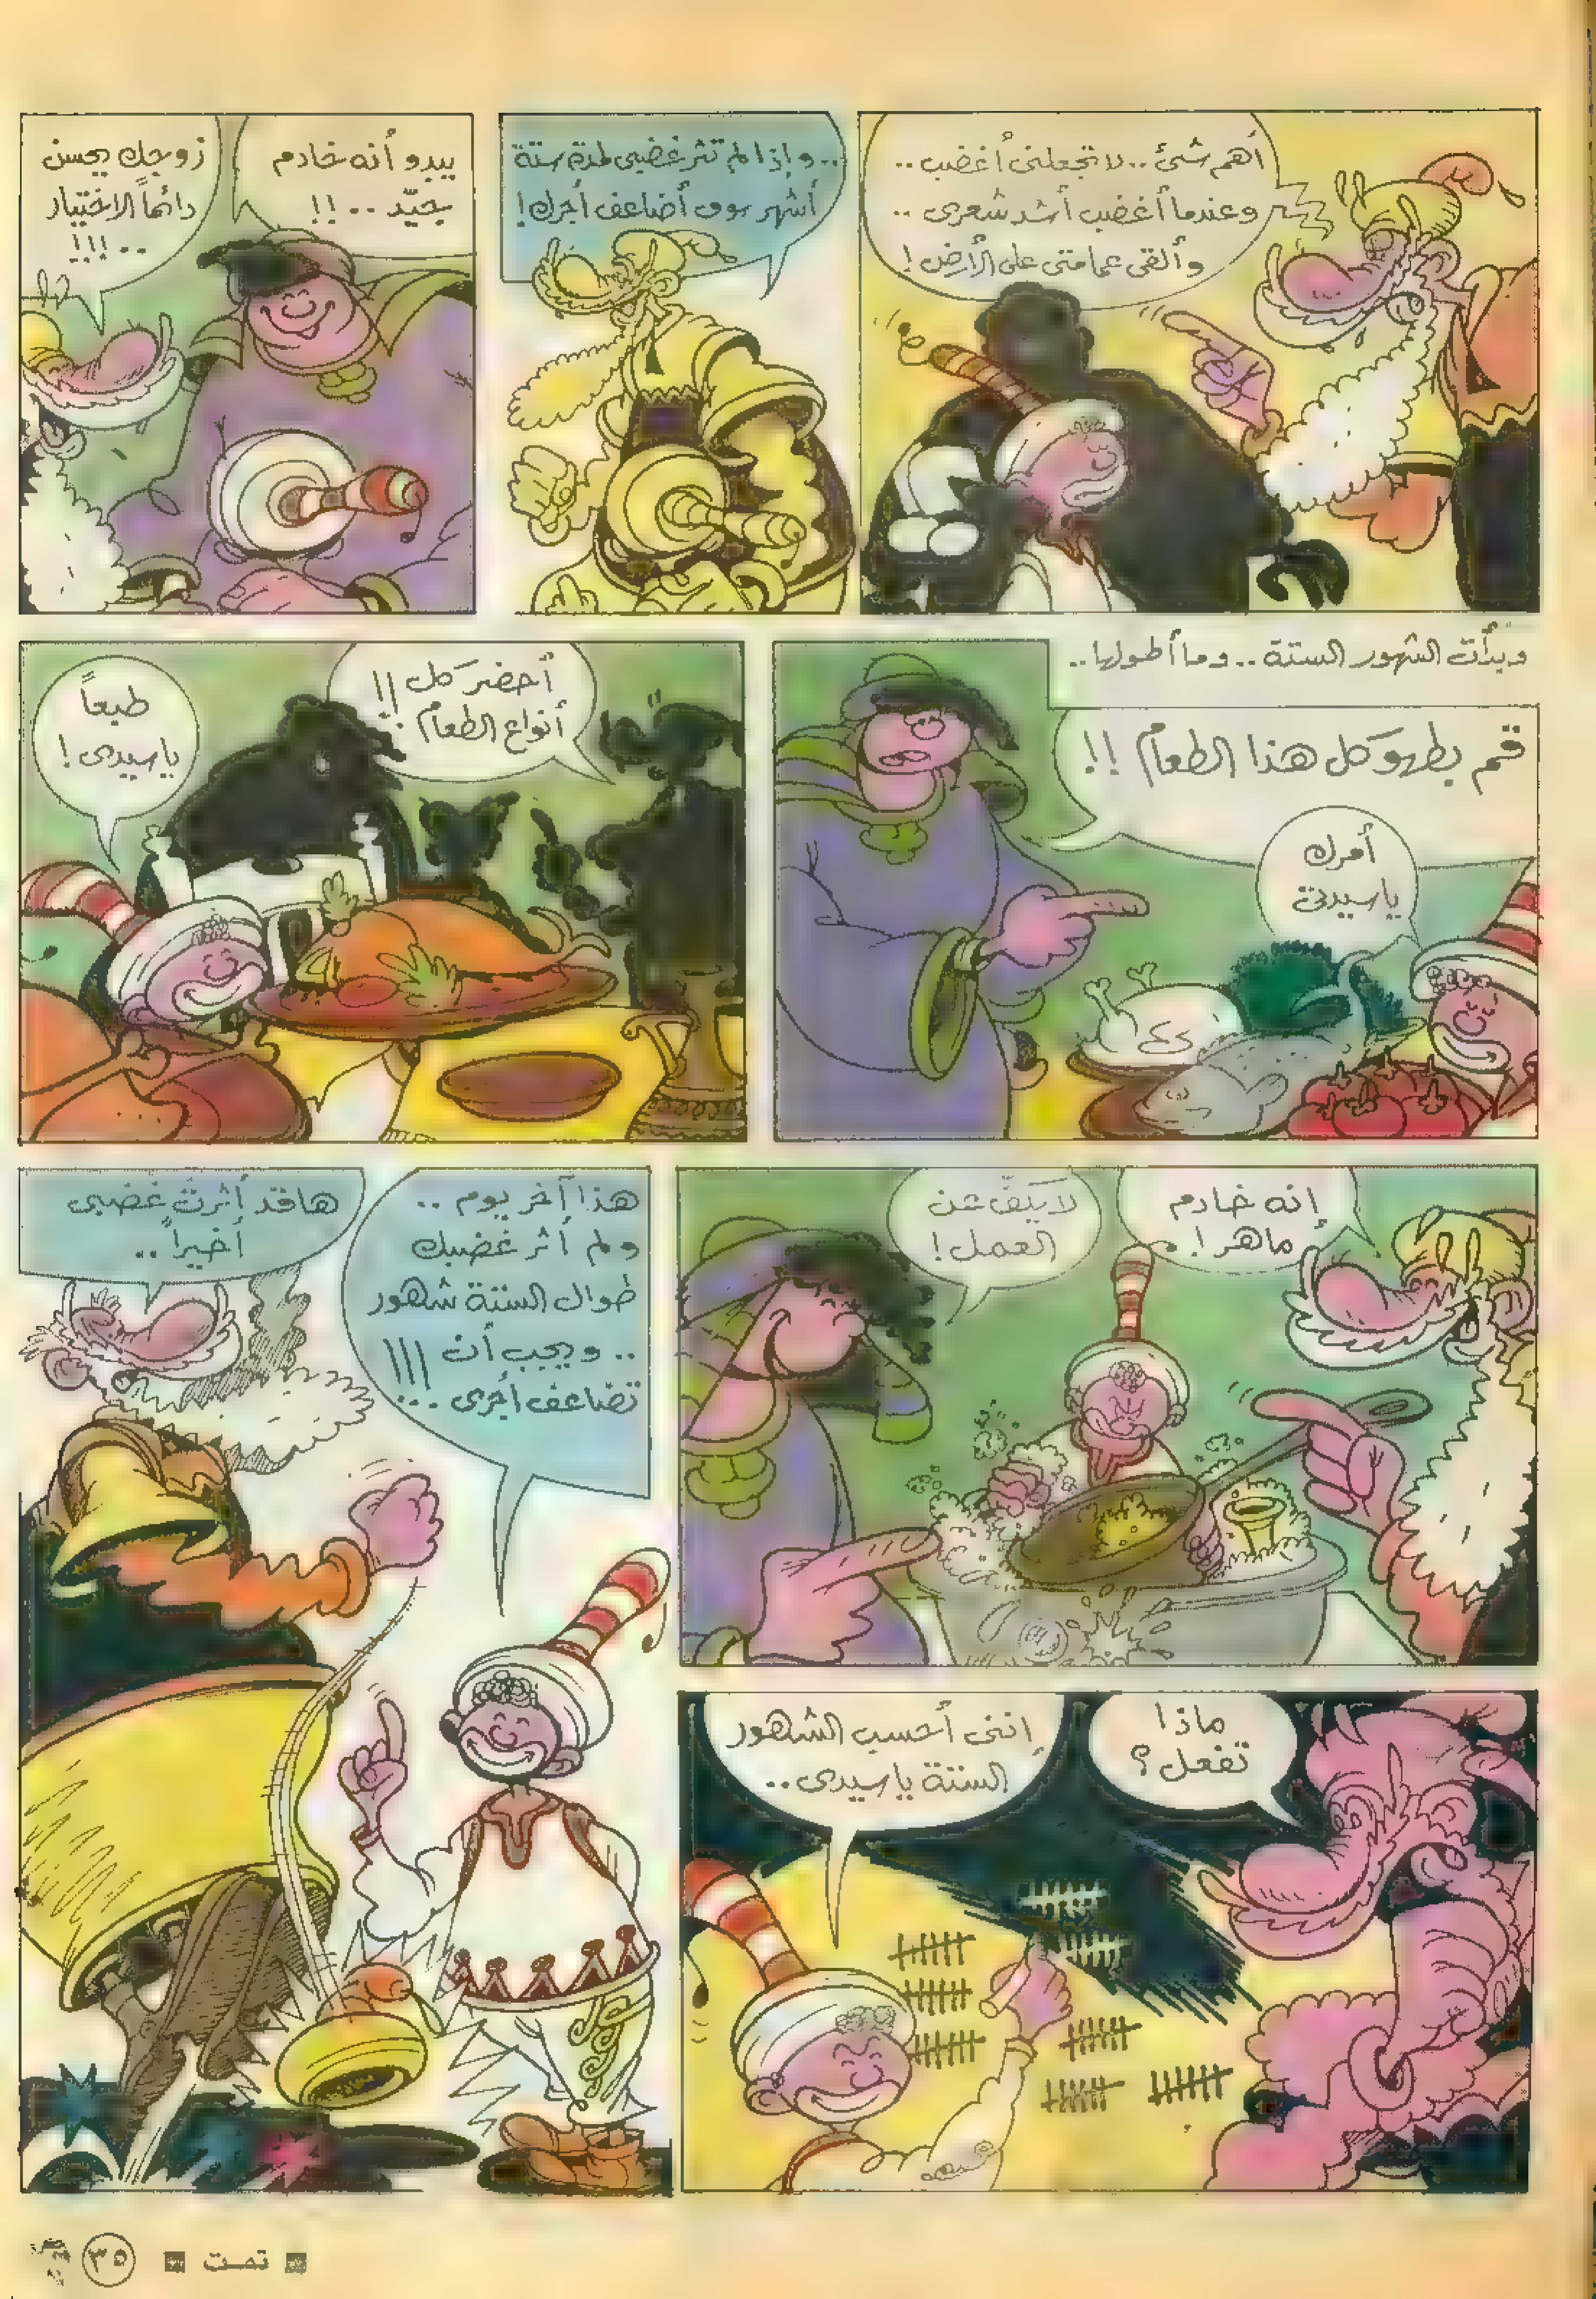 أهم شئ.. لا تجعلنى أغضب..
وعندما أغضب أشد شعرى..
وألقى عمامتى على الأرض!
..وإذا لم تثر غضبى لمدة ستة
أشهر سوف أضاعف أجرك!
يبدو أنه خادم
جيّد..!!
زوجك يحسن
دائماً الاختيار
..!!!
وبدأت الشهور الستة.. وما أطولها..
قم بطهو كل هذا الطعام!!
أمرك
ياسيدتى
أحضر كل
أنواع الطعام!!
طبعاً
ياسيدى!
إنه خادم
ماهر!
لا يكفّ عن
العمل!
ماذا
تفعل؟
إننى أحسب الشهور
الستة ياسيدى..
هذا آخر يوم..
ولم أثر غضبك
طوال الستة شهور
.. ويجب أن
تضاعف أجرى...!!!
ها قد أثرت غضبى
أخيراً..
تمت
٣٥